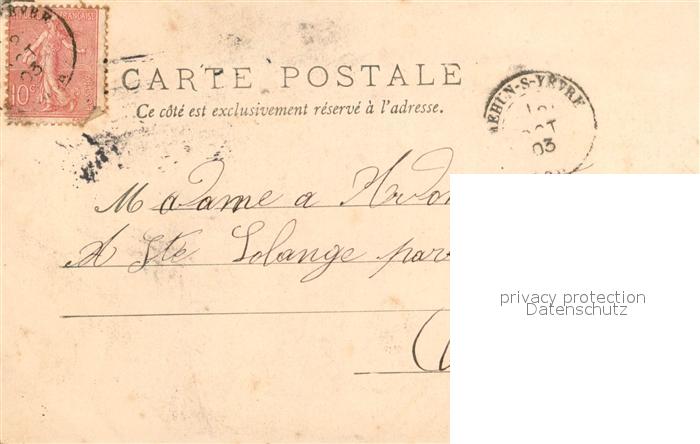 FRANÇAISE
10c
CARTE POSTALE
Ce côté est exclusivement réservé à l'adresse.
MEHUN-S-YEVRE
OCT
03
Madame a
A Ste Solange par
privacy protection
Datenschutz